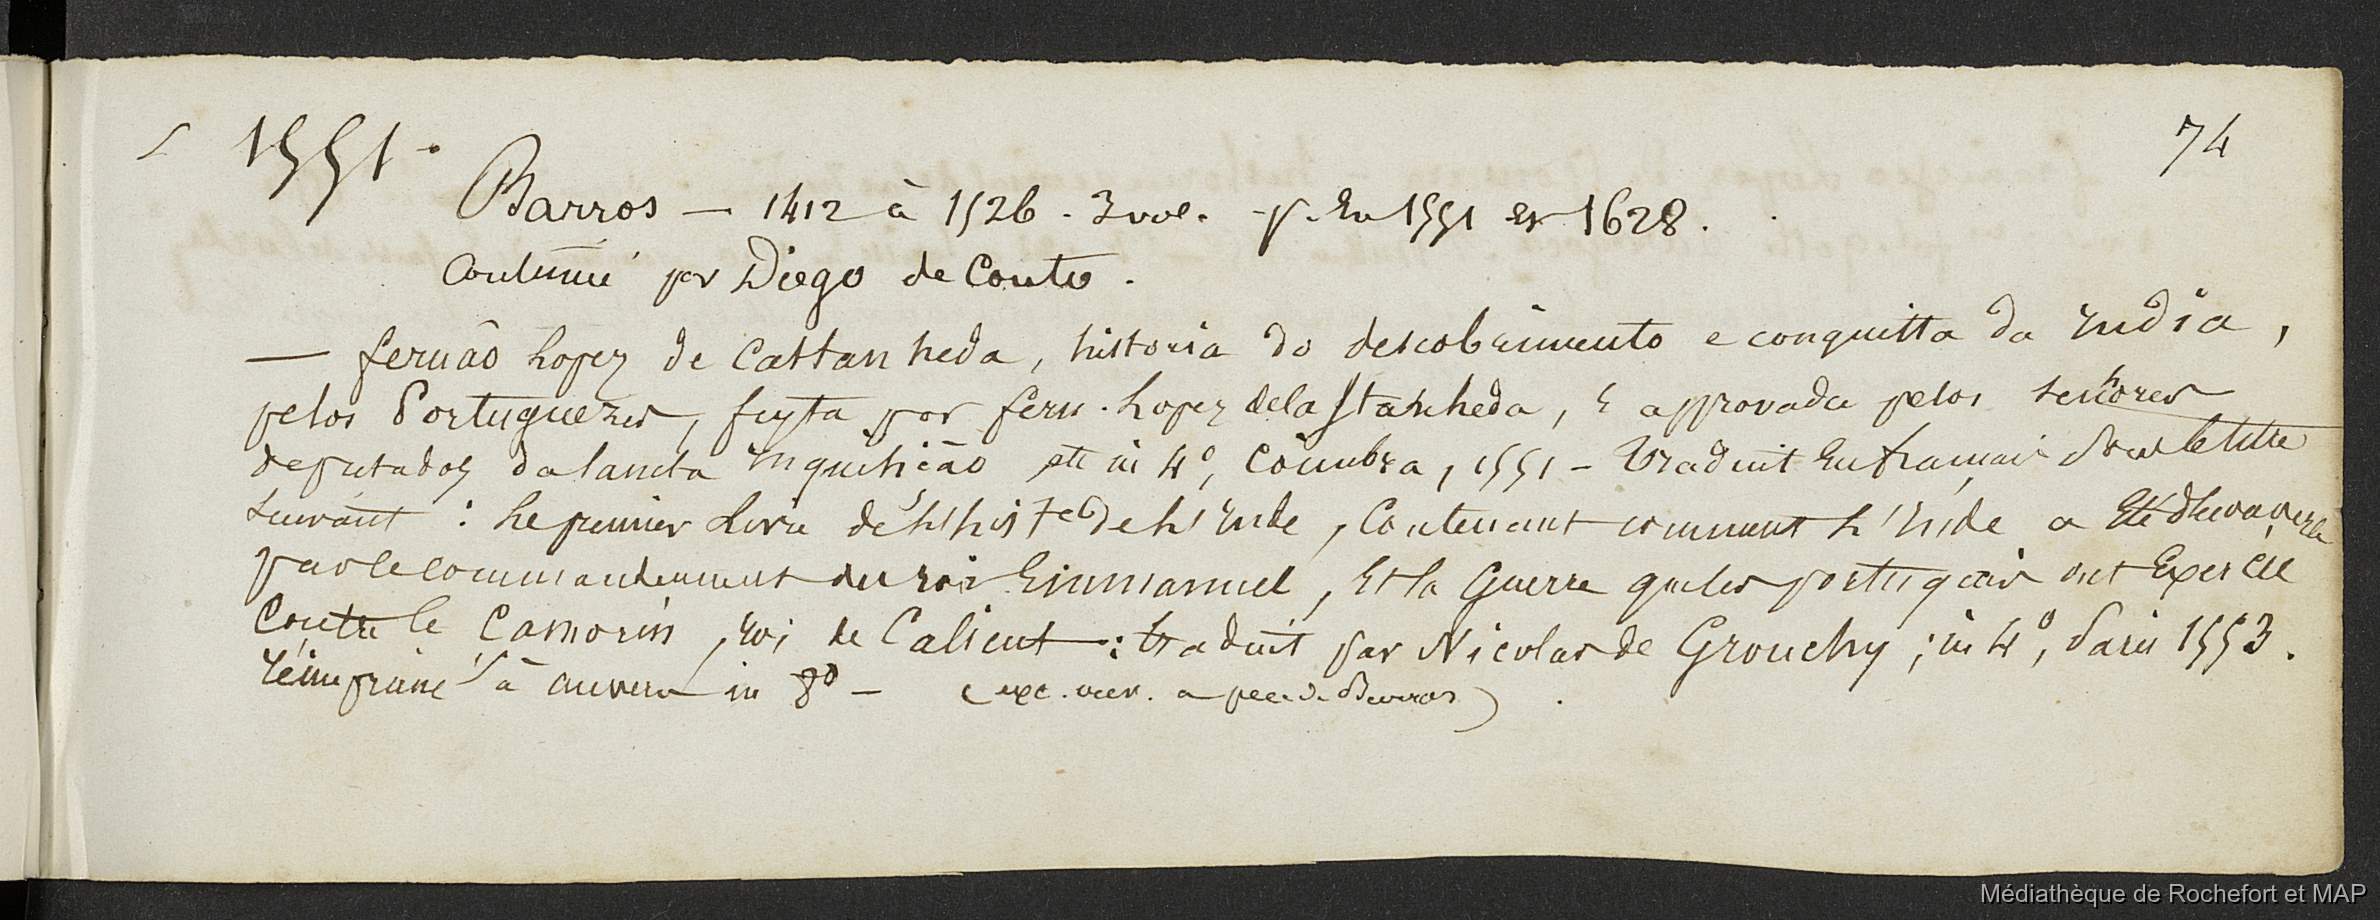 74
1551.
Barros — 1412 à 1526. 3 vol. p. En 1551 Et 1628.
Continué par Diego de Couto.
— fernão Lopez de Castanheda, historia do descobrimento e conquista da India,
pelos Portuguezes, feyta por fern. Lopez de la Stanheda, E approvada pelos señores
deputados da sancta inquisicão etc in 4°, Coimbra, 1551 — Traduit En français Sous le titre
suivant : Le premier Livre de l'hist de L'Inde, Contenant comment L'Inde a Eté découverte
par le commandement du roi Emmanuel, Et la Guerre que les portugais ont Exercée
Contre le Çamorin, roi de Calicut : traduit par Nicolas de Grouchy ; in 4°, Paris 1553.
réimprimé à anvers in 8° — ( de Barros) .
Médiathèque de Rochefort et MAP